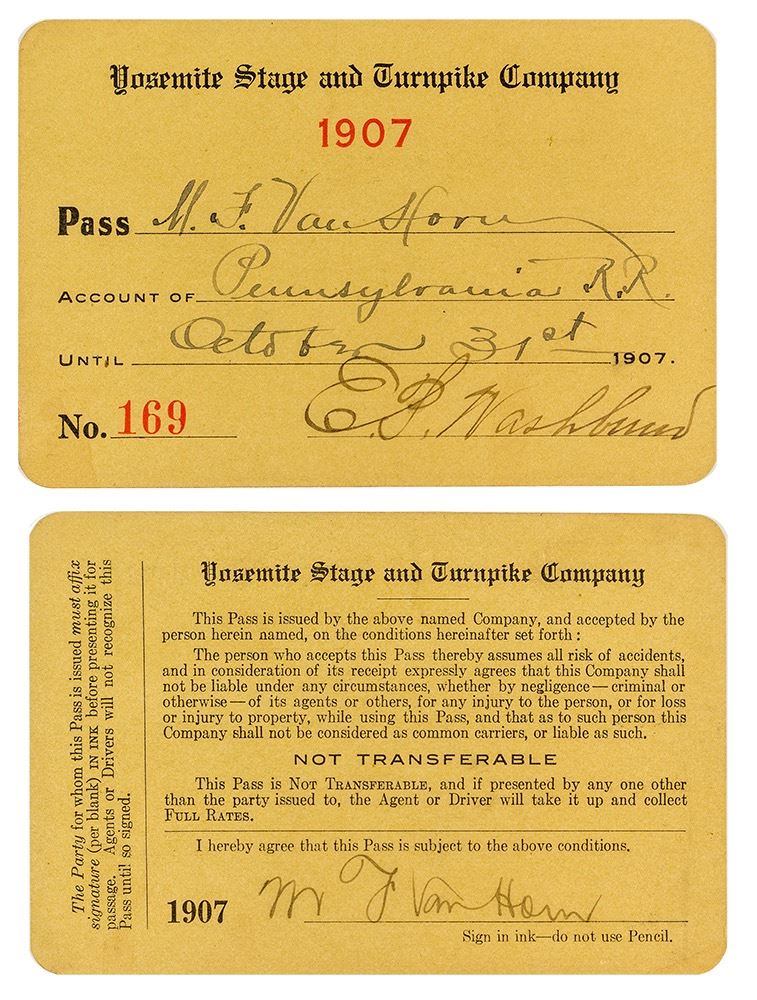 Yosemite Stage and Turnpike Company
1907
Pass M. F. Van Horn
ACCOUNT OF Pennsylvania R.R.
UNTIL October 31st 1907.
No. 169 E. P. Washburn
The Party for whom this Pass is issued must affix
signature (per blank) IN INK before presenting it for
passage. Agents or Drivers will not recognize this
Pass until so signed.
Yosemite Stage and Turnpike Company
This Pass is issued by the above named Company, and accepted by the
person herein named, on the conditions hereinafter set forth:
The person who accepts this Pass thereby assumes all risk of accidents,
and in consideration of its receipt expressly agrees that this Company shall
not be liable under any circumstances, whether by negligence—criminal or
otherwise—of its agents or others, for any injury to the person, or for loss
or injury to property, while using this Pass, and that as to such person this
Company shall not be considered as common carriers, or liable as such.
NOT TRANSFERABLE
This Pass is NOT TRANSFERABLE, and if presented by any one other
than the party issued to, the Agent or Driver will take it up and collect
FULL RATES.
I hereby agree that this Pass is subject to the above conditions.
1907 M F Van Horn
Sign in ink—do not use Pencil.